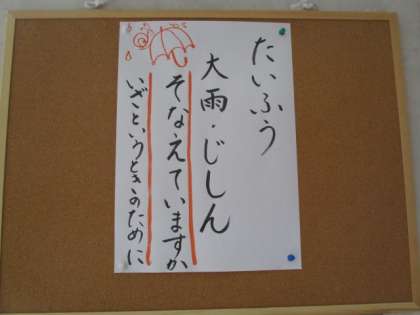 たいふう
大雨・じしん
そなえていますか
いざというときのために